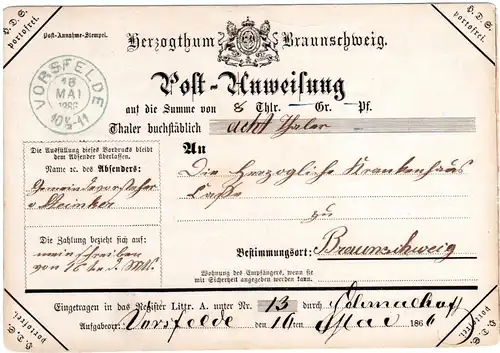 H. D. S.
portofrei.
H. D. S.
portofrei.
Post-Annahme-Stempel.
Herzogthum Braunschweig.
VORSFELDE
16
MAI
1866
10½-11
Post-Anweisung
auf die Summe von 8 Thlr. — Gr. — Pf.
Thaler buchstäblich acht Thaler
Die Ausfüllung dieses Vordrucks bleibt
dem Absender überlassen.
Name &c. des Absenders:
Gemeindevorsteher
Steinker
Die Zahlung bezieht sich auf:
mein Schreiben
von 16 d. Mts.
An
Die Herzogliche Krankenhaus
Casse
zu
Bestimmungsort: Braunschweig
Wohnung des Empfängers, wenn sie
mit Sicherheit angegeben werden kann.
Eingetragen in das Register Littr. A. unter Nr. 13 durch
Aufgabeort: Vorsfelde den 16 ten Mai 1866
H. D. S.
portofrei.
H. D. S.
portofrei.